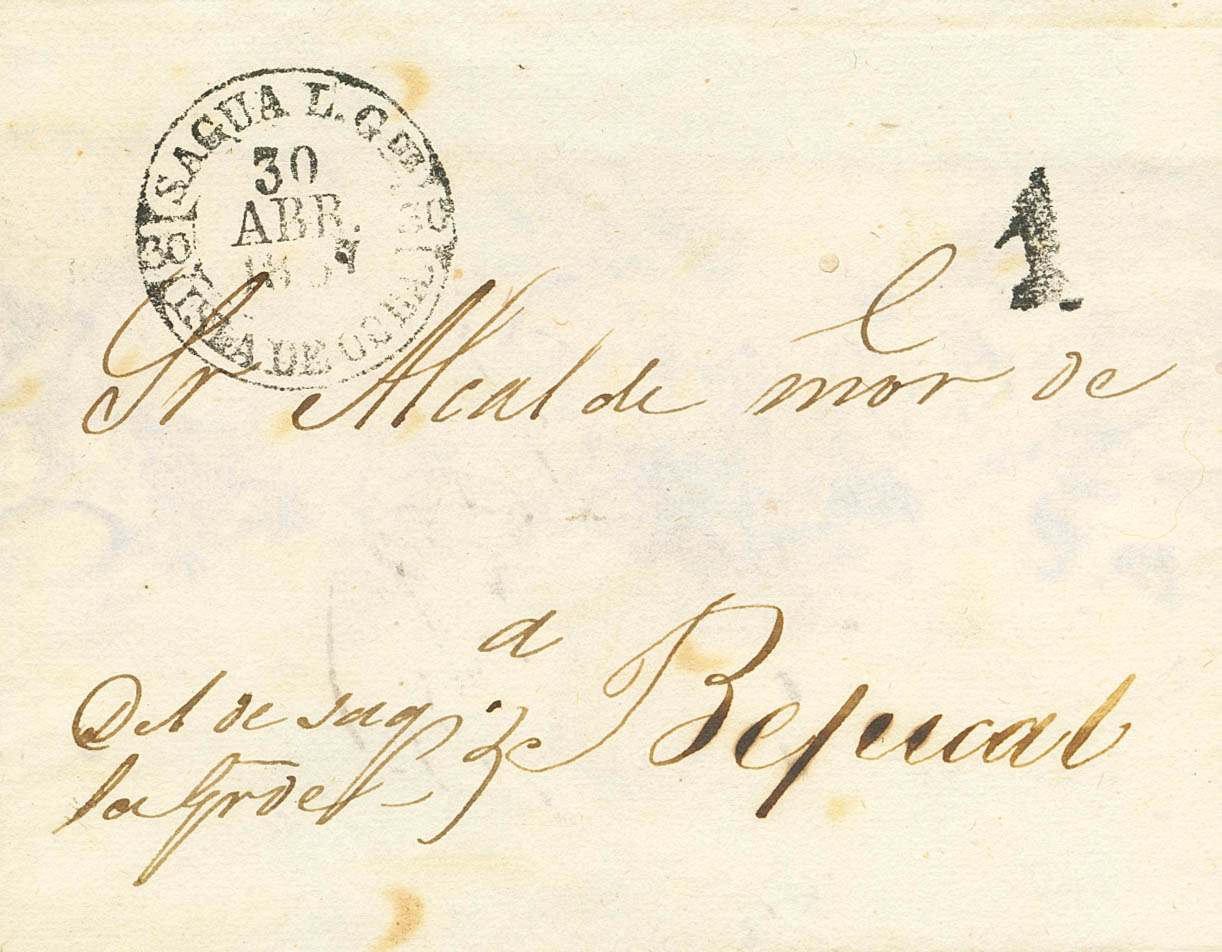 SAGUA L. G
30
ABR.
1857
ISLA DE CUBA
1
Sr Alcalde mor de
a
Bejucal
Del de sag
la Grde